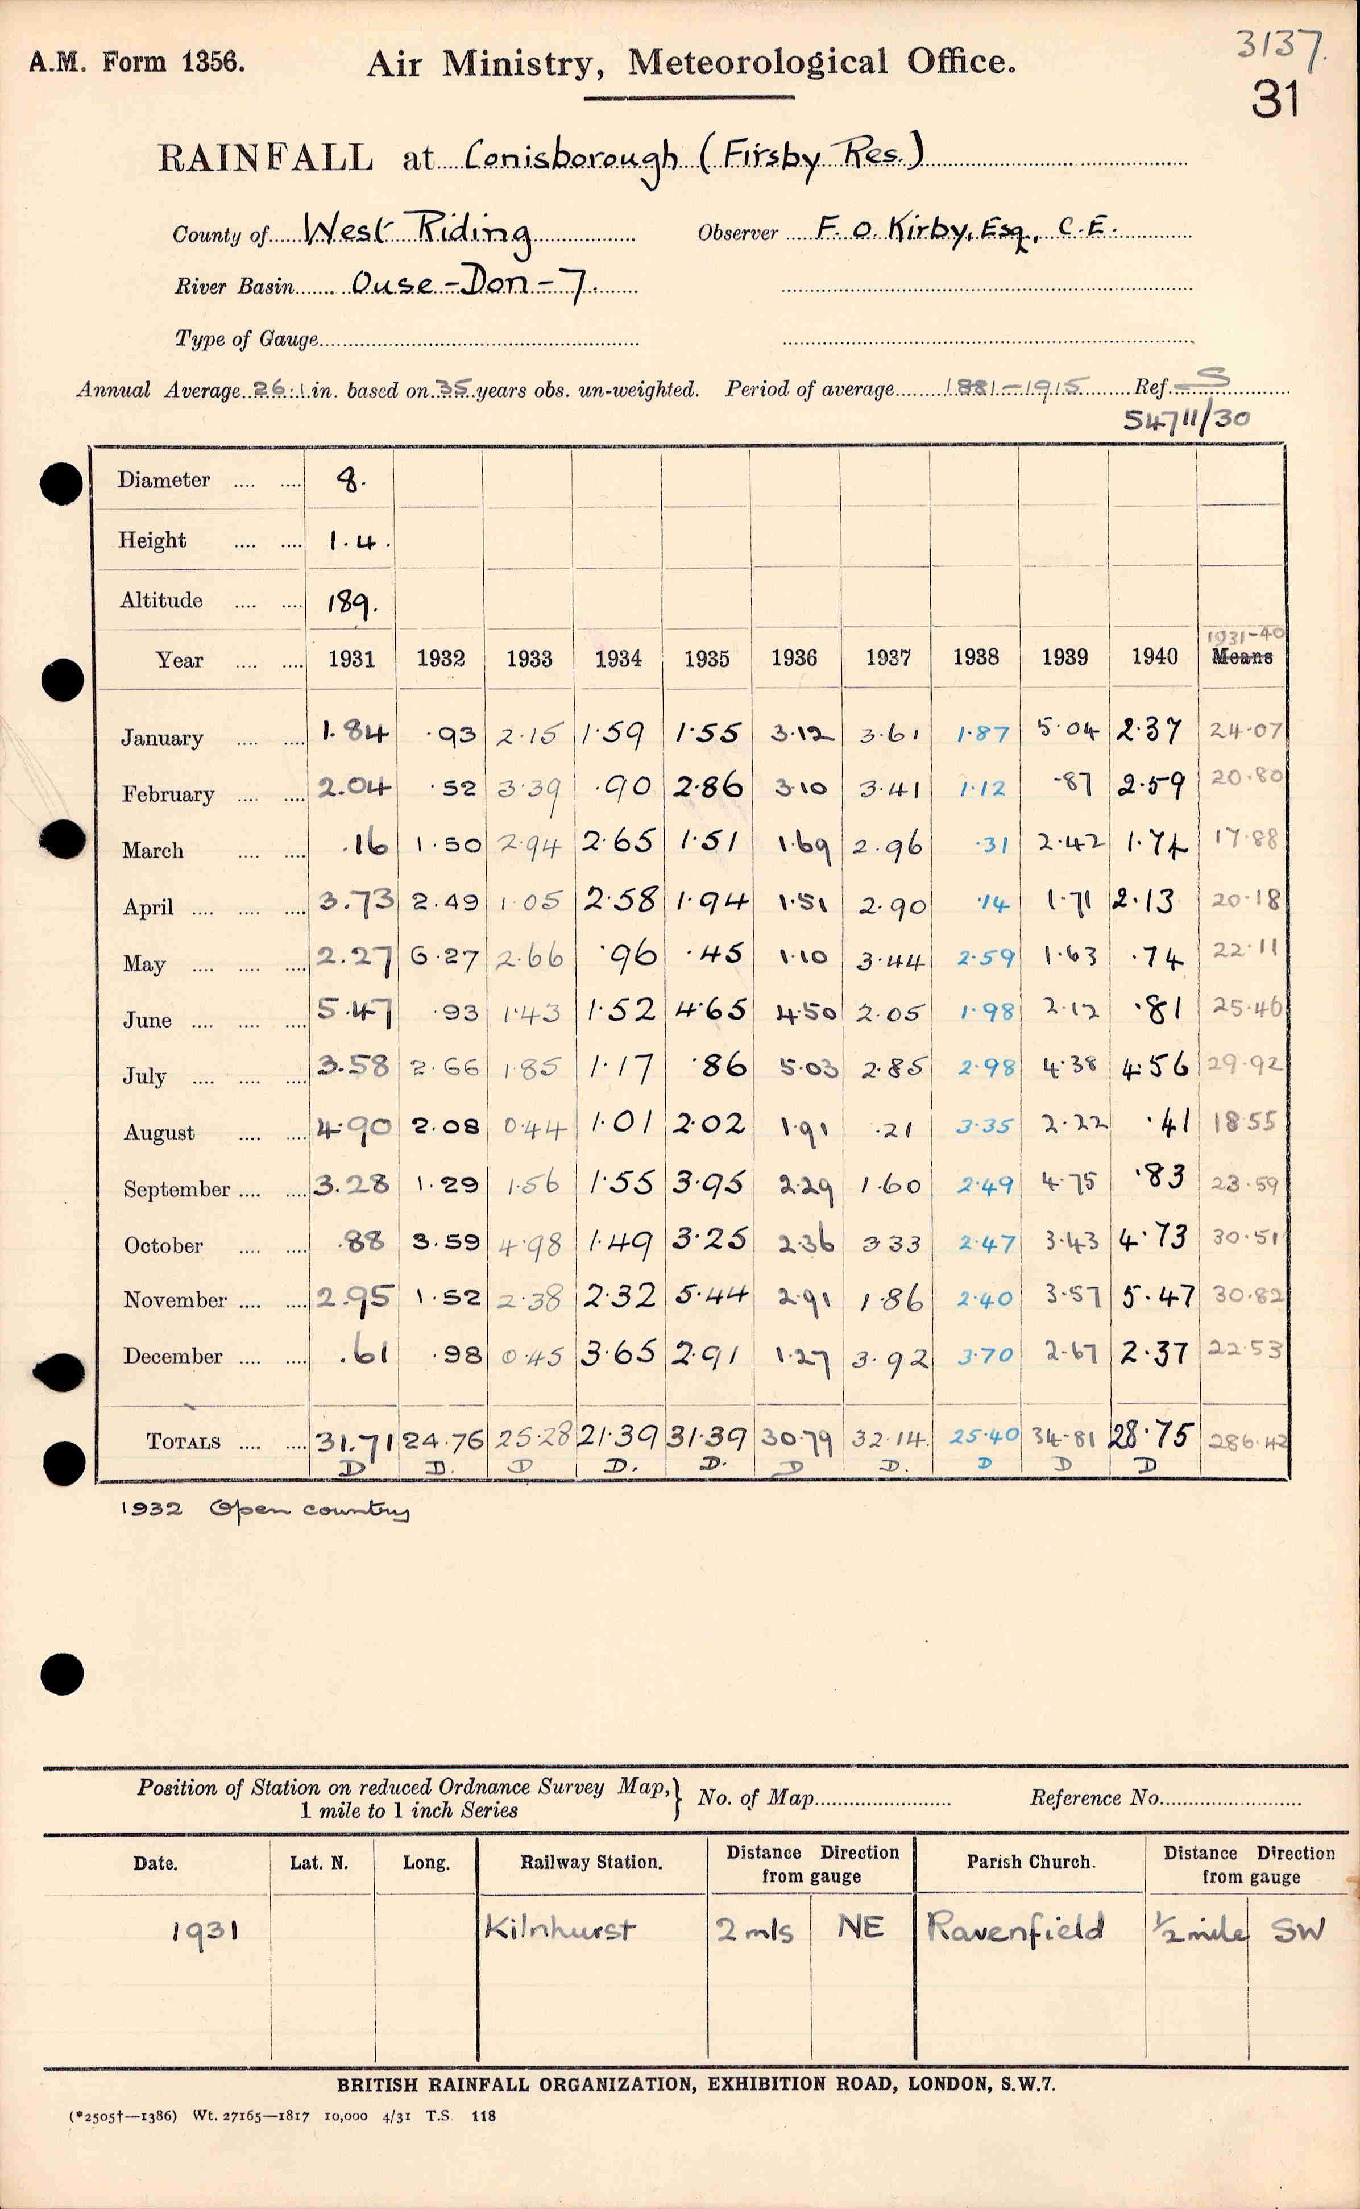 3137.
A.M. Form 1356. Air Ministry, Meteorological Office.
31
RAINFALL at Conisborough (Firsby Res.)
County of West Riding Observer F. O. Kirby, Esq., C.E.
River Basin Ouse-Don-7.
Type of Gauge
Annual Average 26.1 in. based on 35 years obs. un-weighted. Period of average 1881-1915 Ref. S
54711/30
Diameter 8.
Height 1.4.
Altitude 189.
1931-40
Year 1931 1932 1933 1934 1935 1936 1937 1938 1939 1940 Means
January 1.84 .93 2.15 1.59 1.55 3.12 3.61 1.87 5.04 2.37 24.07
February 2.04 .52 3.39 .90 2.86 3.10 3.41 1.12 .87 2.59 20.80
March .16 1.50 2.94 2.65 1.51 1.69 2.96 .31 2.42 1.74 17.88
April 3.73 2.49 1.05 2.58 1.94 1.51 2.90 .14 1.71 2.13 20.18
May 2.27 6.27 2.66 .96 .45 1.10 3.44 2.59 1.63 .74 22.11
June 5.47 .93 1.43 1.52 4.65 4.50 2.05 1.98 2.12 .81 25.46
July 3.58 2.66 1.85 1.17 .86 5.03 2.85 2.98 4.38 4.56 29.92
August 4.90 2.08 0.44 1.01 2.02 1.91 .21 3.35 2.22 .41 18.55
September 3.28 1.29 1.56 1.55 3.95 2.29 1.60 2.49 4.75 .83 23.59
October .88 3.59 4.98 1.49 3.25 2.36 3 33 2.47 3.43 4.73 30.51
November 2.95 1.52 2.38 2.32 5.44 2.91 1.86 2.40 3.57 5.47 30.82
December .61 .98 0.45 3.65 2.91 1.27 3.92 3.70 2.67 2.37 22.53
TOTALS 31.71 24.76 25.28 21.39 31.39 30.79 32.14. 25.40 34.81 28.75 286.42
D D. D D. D. D D. D D D
1932 Open country
Position of Station on reduced Ordnance Survey Map, } No. of Map Reference No.
1 mile to 1 inch Series
Date. Lat. N. Long. Railway Station. Distance Direction from gauge Parish Church. Distance Direction from gauge
1931 Kilnhurst 2 mls NE Ravenfield 1/2 mile SW
BRITISH RAINFALL ORGANIZATION, EXHIBITION ROAD, LONDON, S.W.7.
(*2505†—1386) Wt. 27165—1817 10,000 4/31 T.S. 118